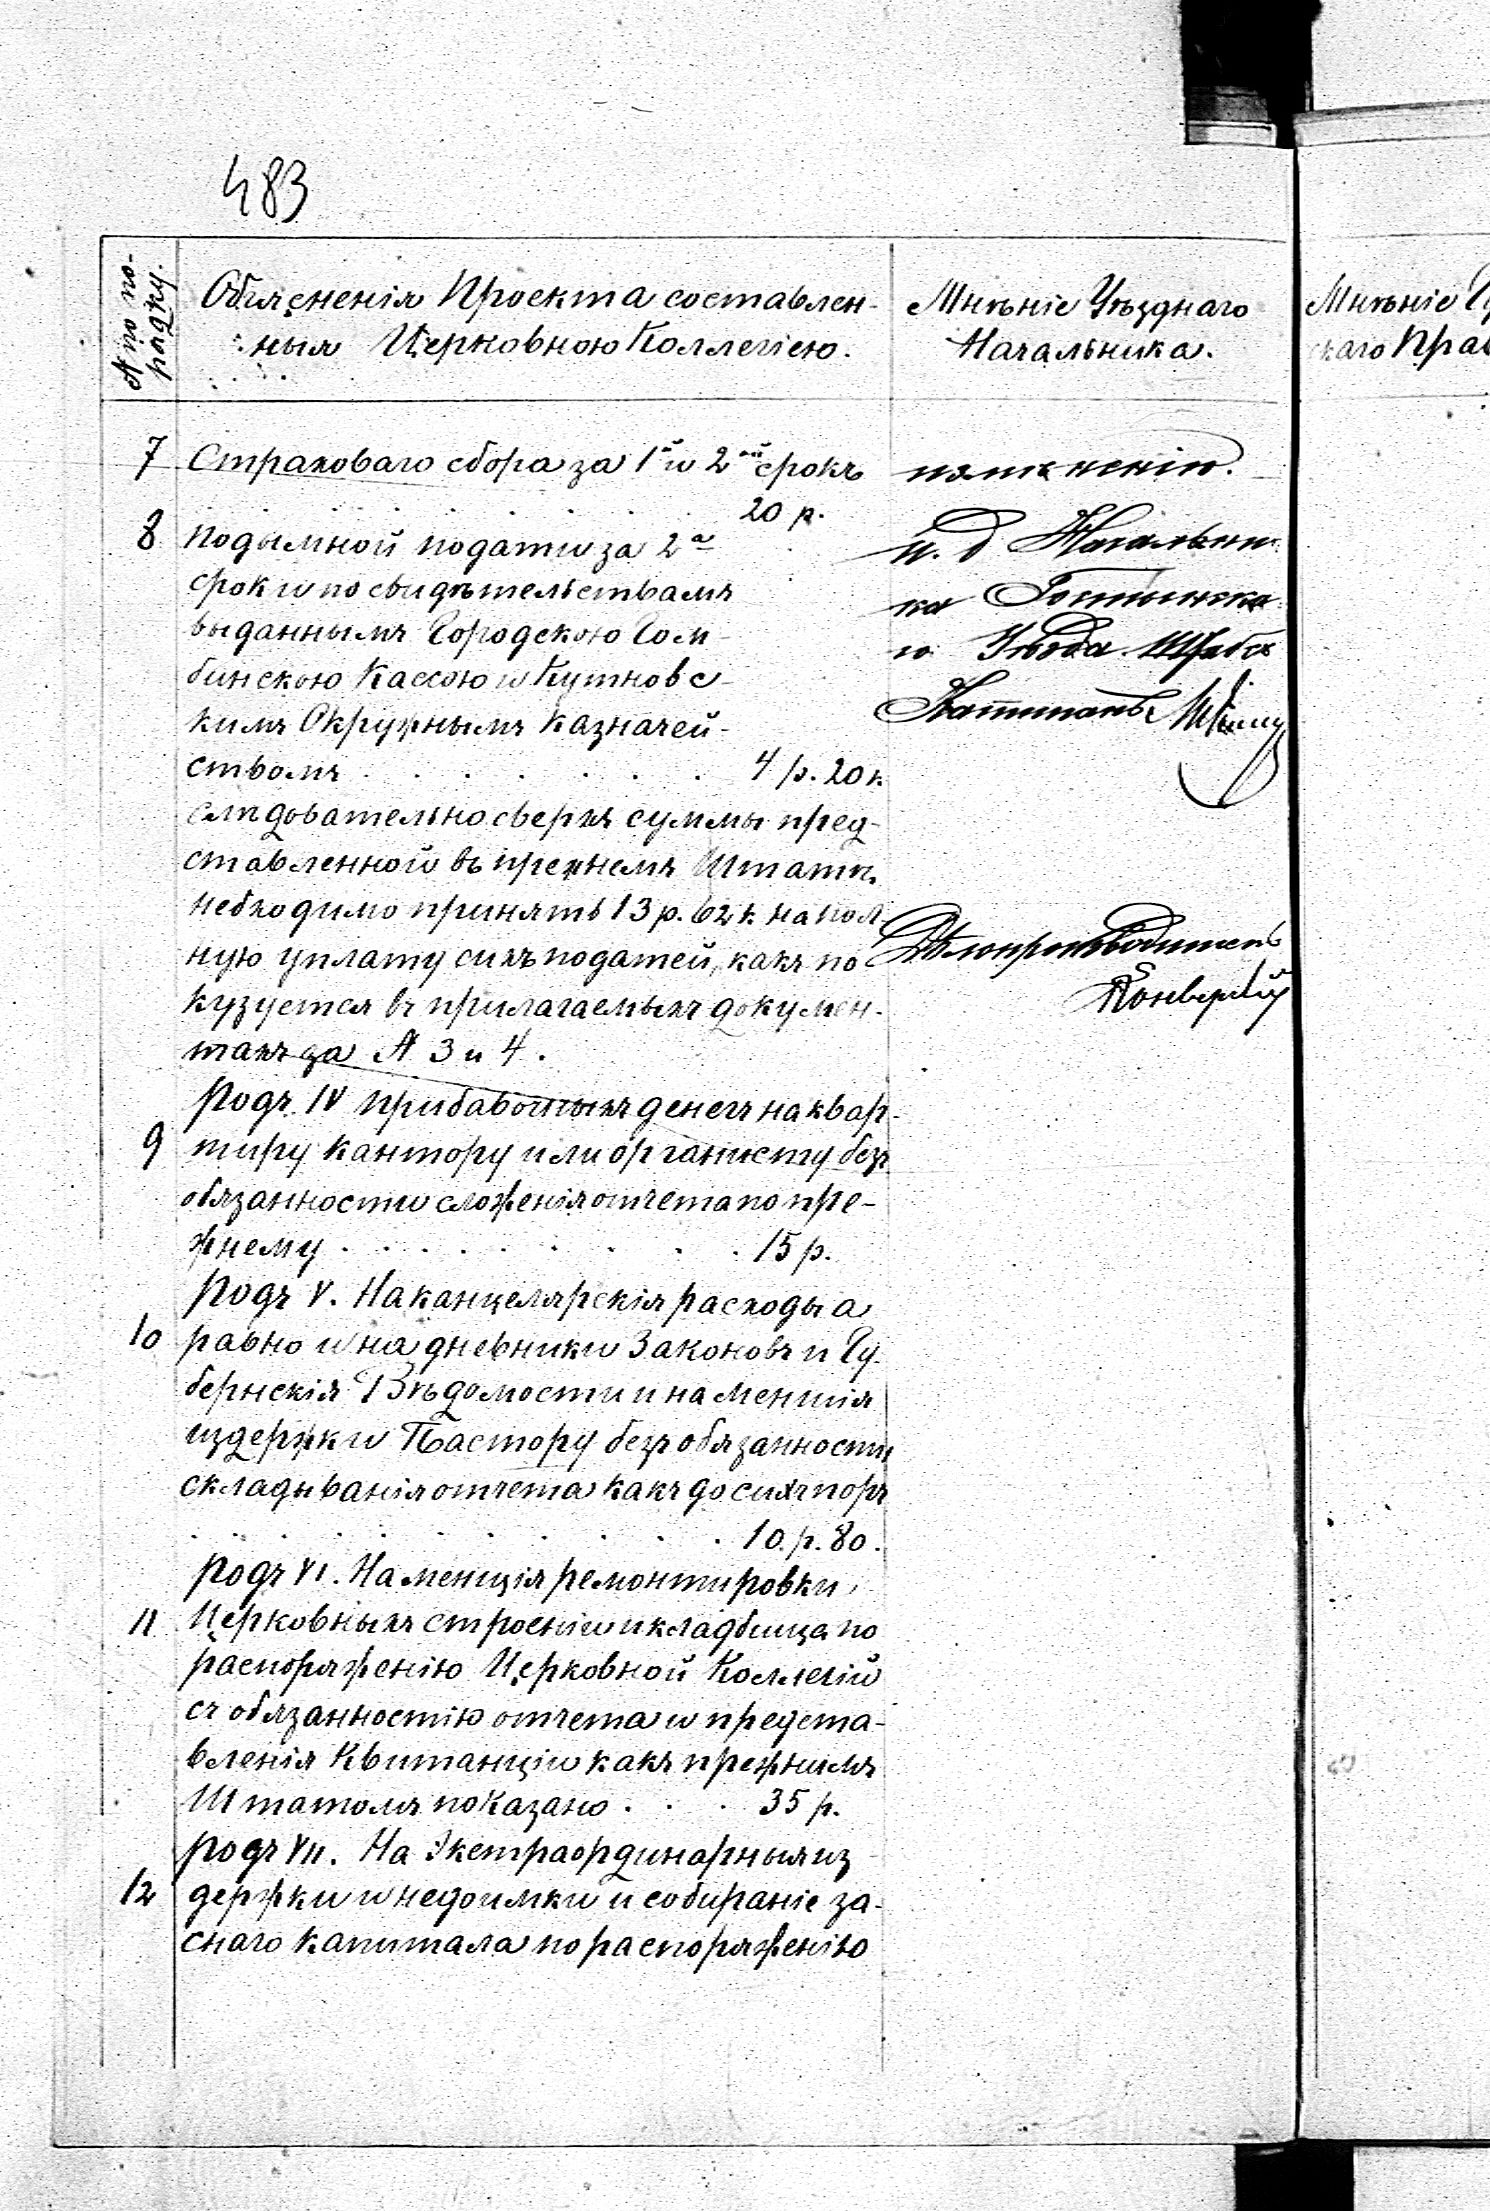 483
№ по по-
рядку.
Объясненія Проекта составлен-
ныя Церковною Коллегіею.
Мнѣніе Уѣзднаго
Начальника.
Мнѣніе Гу
скаго Прав
7 Страховаго сбора за 1й и 2ой срокъ
20 р.
8 Подымной подати за 2а
срока по свидѣтельствамъ
выданнымъ Городскою Гом-
бинскою Кассою и Кутновс-
кимъ Окружнымъ Казначей-
ствомъ . . . . . . . 4 р. 20 к
слѣдовательно сверхъ суммы пред-
ставленной въ прежнемъ Штатѣ
небходимо принять 13 р. 62 к. на пол-
ную уплату сихъ податей, какъ по
кузуется въ прилагаемыхъ докумен-
тахъ за № 3 и 4.
родъ IV прибавочныхъ денегъ на квар-
9 тиру кантору или органисту безъ
обязанности сложенія отчета по пре-
жнему . . . . . . . . . . 15 р.
родъ V. На канцелярскія расходы а
10 равно и на дневники Законовъ и Гу-
бернскія Вѣдомости и на меншія
издержки Пастору безъ обязанности
складыванія отчета какъ до сихъ поръ
. . . . . . . . . . 10. р. 80.
родъ VI. На менщія ремонтировки
11 Церковныхъ строеній и кладбища по
распоряженію Церковной Коллегій
съ обязанностію отчета и предста-
вленія Квитанціи какъ прежнимъ
Штатомъ показано . . . 35 р.
родъ VII. На Экстраординарныя из
12 держки и недоимки и собираніе за-
снаго капитала по распоряженію
и. д Начальни-
ка Гостынска-
го Уѣзда Штабсъ
Капитанъ
Дѣлопроизводитель